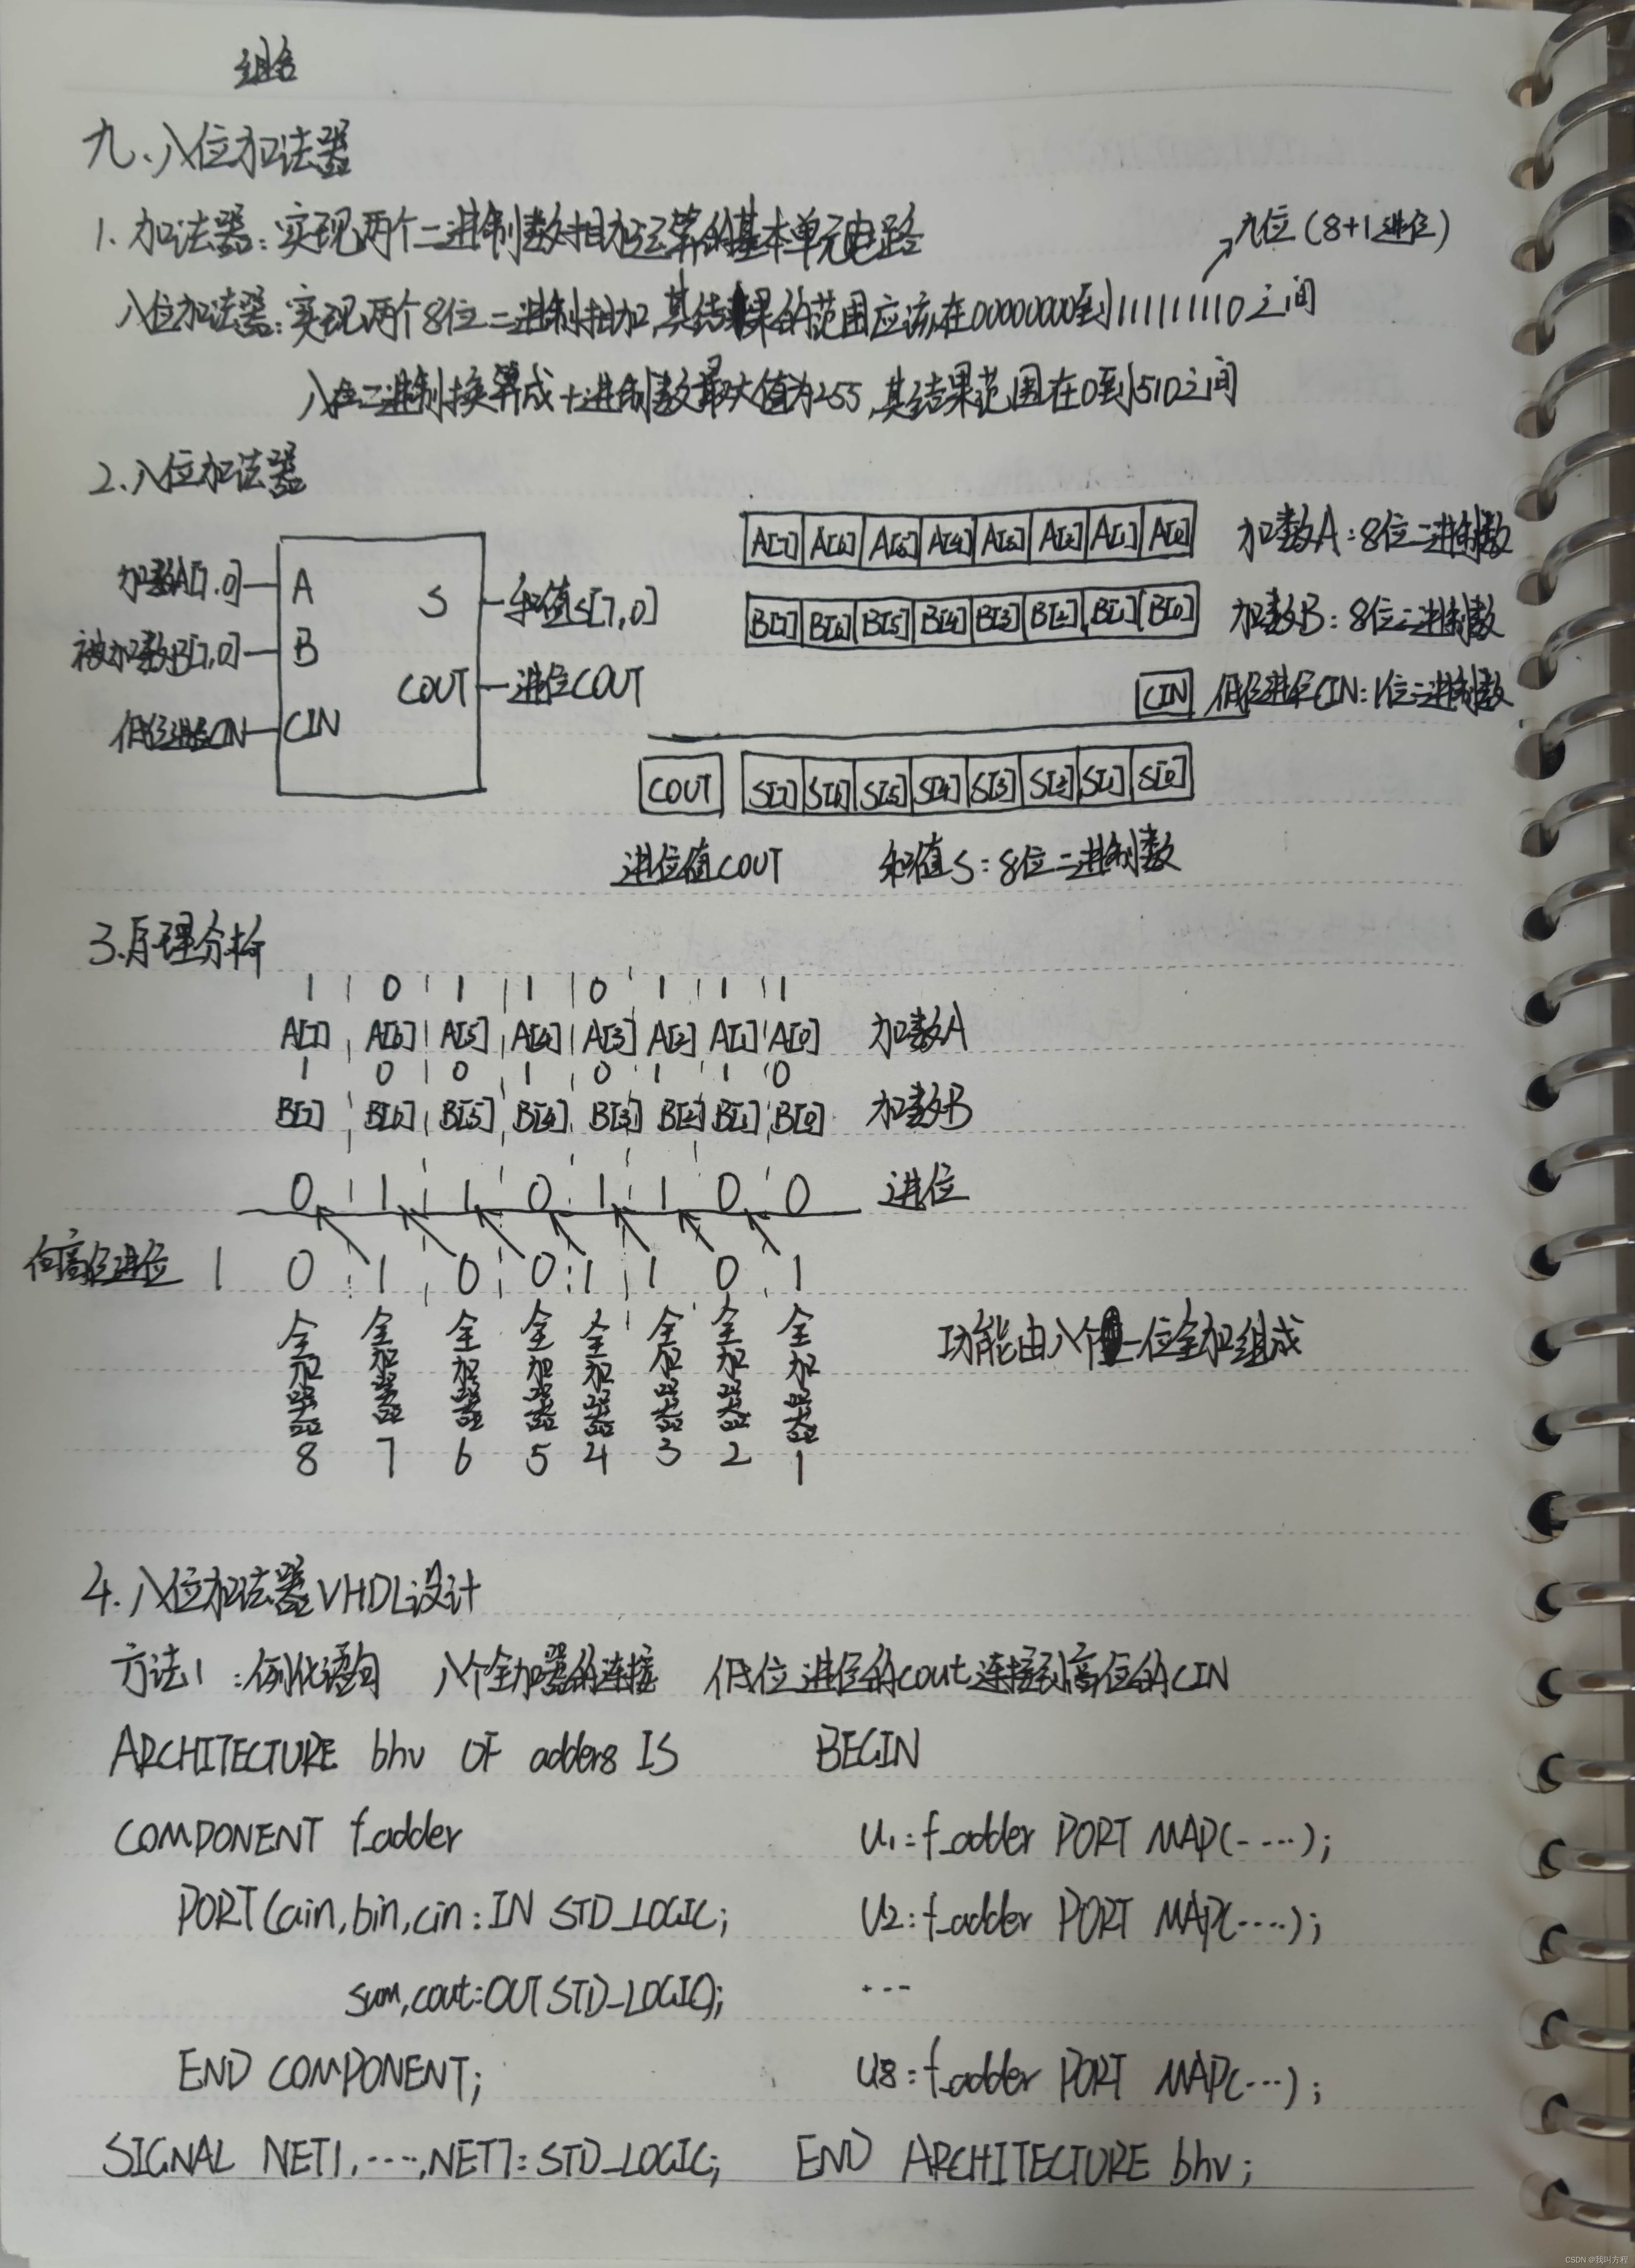 组合
九、八位加法器
1. 加法器：实现两个二进制数相加运算的基本单元电路
九位(8+1进位)
八位加法器：实现两个8位二进制相加,其结果的范围应该在00000000到111111110之间
八位二进制换算成十进制数最大值为255,其结果范围在0到510之间
2.八位加法器
加数A[7..0] A S 和值S[7,0]
被加数B[7,0] B
COUT 进位COUT
低位进位CIN CIN
A[7] A[6] A[5] A[4] A[3] A[2] A[1] A[0] 加数A：8位二进制数
B[7] B[6] B[5] B[4] B[3] B[2] B[1] B[0] 加数B：8位二进制数
CIN 低位进位CIN：1位二进制数
COUT S[7] S[6] S[5] S[4] S[3] S[2] S[1] S[0]
进位值COUT 和值S：8位二进制数
3.原理分析
1 0 1 1 0 1 1 1
A[7] A[6] A[5] A[4] A[3] A[2] A[1] A[0] 加数A
1 0 0 1 0 1 1 0
B[7] B[6] B[5] B[4] B[3] B[2] B[1] B[0] 加数B
0 1 1 0 1 1 0 0 进位
向高位进位 1 0 1 0 0 1 1 0 1
全加器8 全加器7 全加器6 全加器5 全加器4 全加器3 全加器2 全加器1
功能由八个一位全加组成
4.八位加法器VHDL设计
方法1：例化语句 八个全加器的连接 低位进位的cout连接到高位的CIN
ARCHITECTURE bhv OF adder8 IS BEGIN
COMPONENT f_adder U1:f_adder PORT MAP(----);
PORT(ain,bin,cin:IN STD_LOGIC; U2:f_adder PORT MAP(····);
sum,cout:OUT STD_LOGIC); ---
END COMPONENT; U8:f_adder PORT MAP(···);
SIGNAL NET1,····,NET7:STD_LOGIC; END ARCHITECTURE bhv;
CSDN @我叫方程